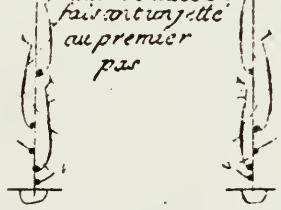 faisant un jetté
au premier
pas